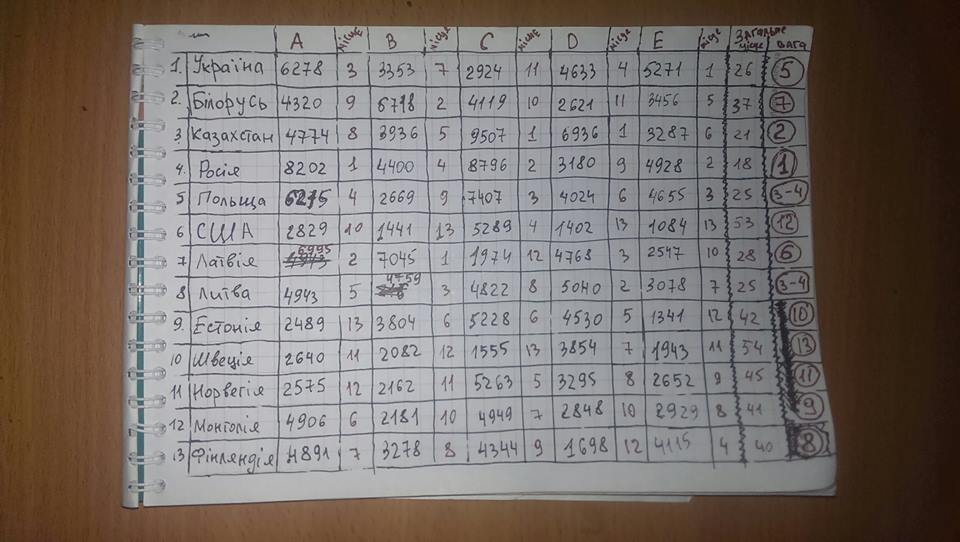 A місце B місце C місце D місце E місце Загальне місце вага
1. Україна 6278 3 3353 7 2924 11 4633 4 5271 1 26 5
2. Білорусь 4320 9 6718 2 4119 10 2621 11 3456 5 37 7
3 Казахстан 4774 8 3936 5 9507 1 6936 1 3287 6 21 2
4. Росія 8202 1 4400 4 8796 2 3180 9 4928 2 18 1
5 Польща 6275 4 2669 9 7407 3 4024 6 4655 3 25 3-4
6 США 2829 10 1441 13 5289 4 1402 13 1084 13 53 12
7 Латвія 6995 2 7045 1 1974 12 4768 3 2547 10 28 6
8 Литва 4943 5 4759 3 4822 8 5040 2 3078 7 25 3-4
9. Естонія 2489 13 3804 6 5228 6 4530 5 1341 12 42 10
10 Швеція 2640 11 2082 12 1555 13 3854 7 1943 11 54 13
11 Норвегія 2575 12 2162 11 5263 5 3295 8 2652 9 45 11
12 Монголія 4906 6 2181 10 4949 7 2848 10 2929 8 41 9
13 Фінляндія 4891 7 3278 8 4344 9 1698 12 4115 4 40 8